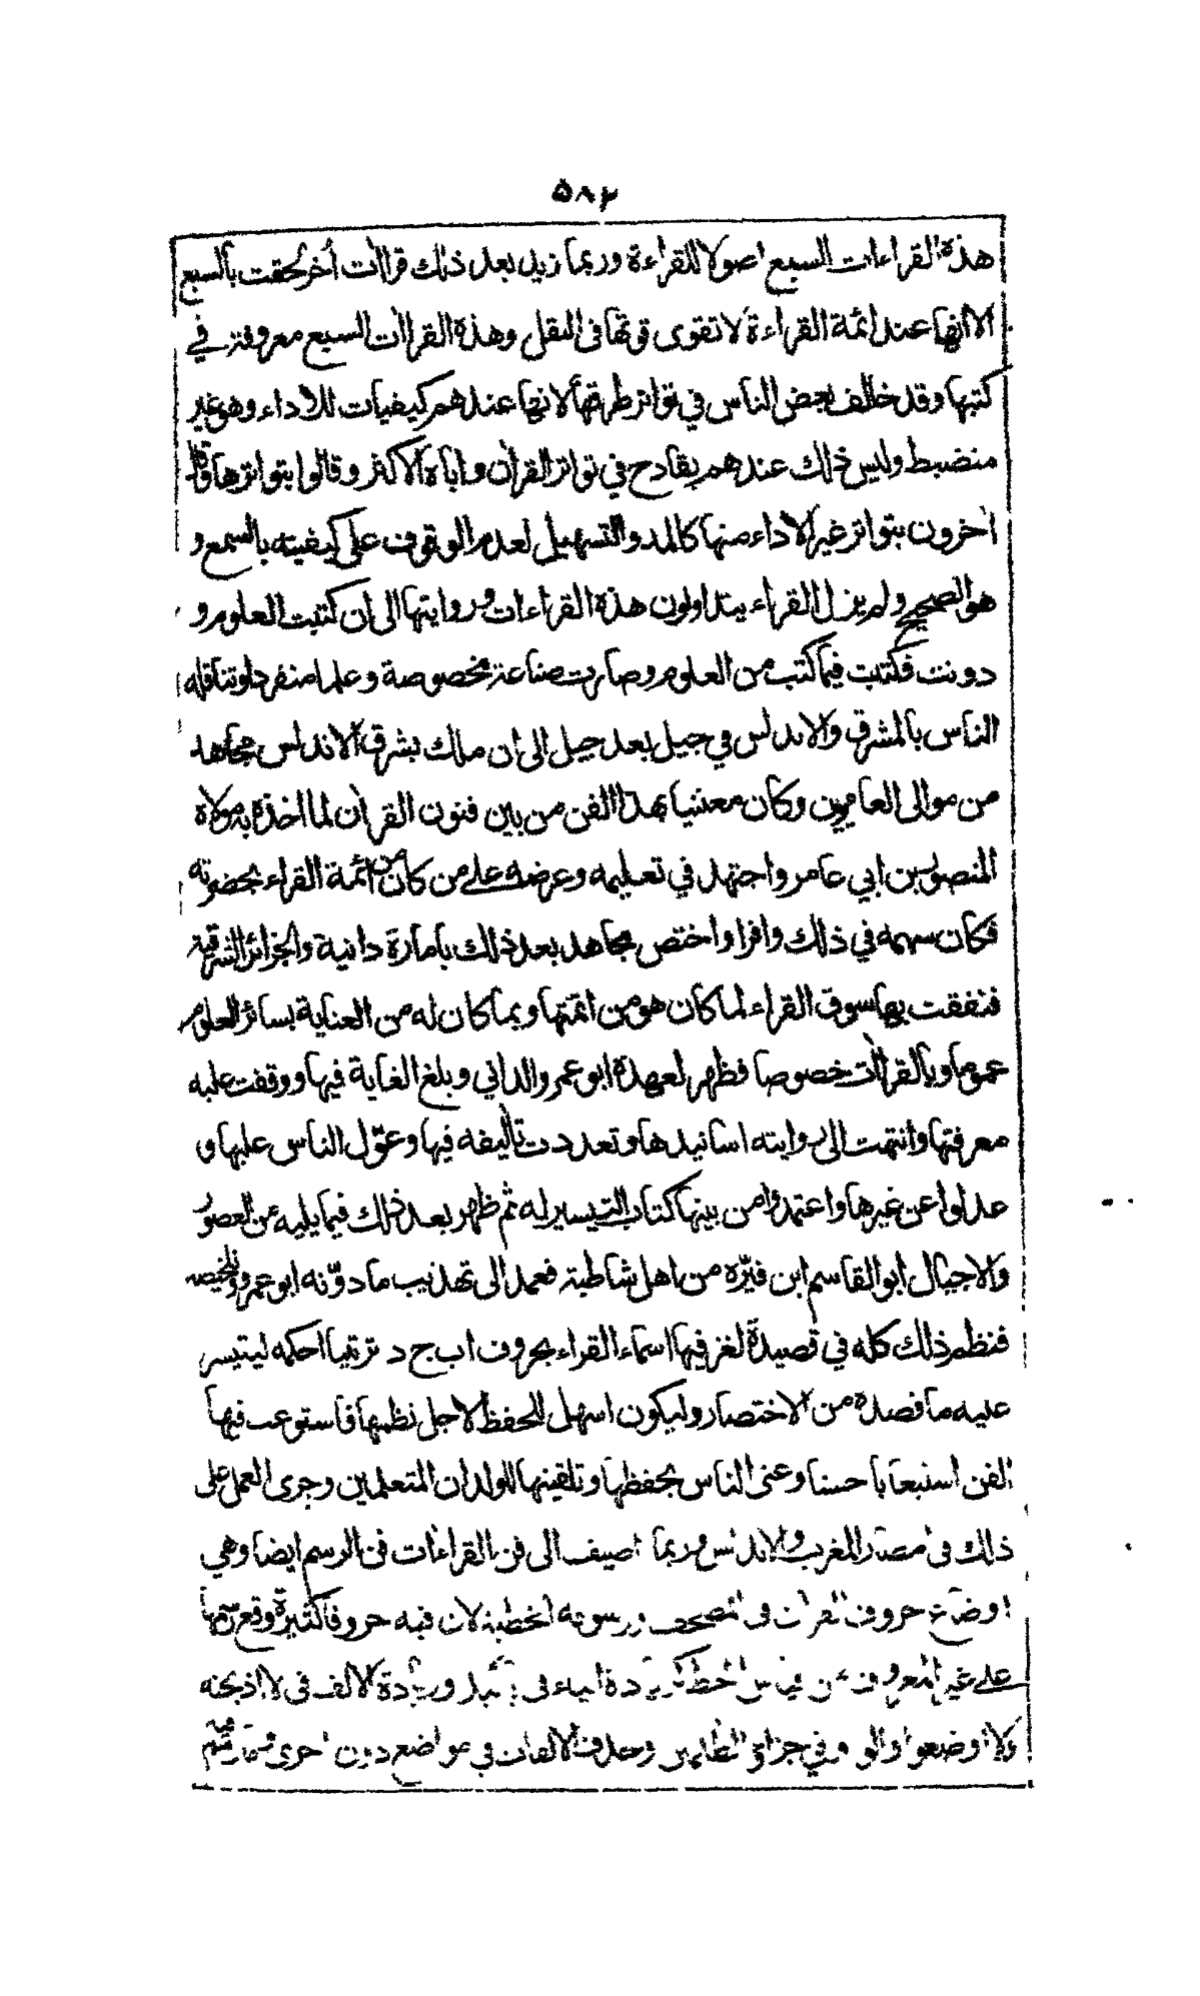 ۵۸۲
هذه القراءات السبع اصولا للقراءة وربما زيد بعد ذلك قراآت أخر لحقت بالسبع
الا انها عند ائمة القراءة لا تقوى قوتها فى النقل وهذه القراآت السبع معروفة في
كتبها وقد خالف بعض الناس في تواتر طرقها لانها عندهم كيفيات للاداء وهو غير
منضبط وليس ذلك عندهم بقادح في تواتر القرآن واباه الاكثر وقالوا بتواترها وقال
آخرون بتواتر غير الاداء منها كالمد والتسهيل لعدم الوقوف على كيفيته بالسمع و
هو الصحيح ولم يزل القراء يتداولون هذه القراءات وروايتها الى ان كتبت العلوم و
دونت فكتبت فيما كتب من العلوم وصارت صناعة مخصوصة وعلما منفردا وتناقله
الناس بالمشرق والاندلس في جيل بعد جيل الى ان ملك بشرق الاندلس مجاهد
من موالى العامريين وكان معتنيا بهذا الفن من بين فنون القرآن لما اخذه به مولاه
المنصور بن ابي عامر واجتهد في تعليمه وعرضه على من كان من ائمة القراء بحضرته
فكان سهمه في ذلك وافرا واختص مجاهد بعد ذلك بامارة دانية والجزائر الشرقية
فنفقت بها سوق القراء لما كان هو من ائمتها وبما كان له من العناية بسائر العلوم
عموما وبالقراآت خصوصا فظهر لعهده ابو عمرو الداني وبلغ الغاية فيها ووقفت عليه
معرفتها وانتهت الى روايته اسانيدها وتعددت تآليفه فيها وعوّل الناس عليها و
عدلوا عن غيرها واعتمدوا من بينها كتاب التيسير له ثم ظهر بعد ذلك فيما يليه من العصور
والاجيال ابو القاسم ابن فيرّه من اهل شاطبة فعمد الى تهذيب ما دوّنه ابو عمرو وتلخيصه
فنظم ذلك كله في قصيدة لغز فيها اسماء القراء بحروف اب ج د ترتيبا احكمه ليتيسر
عليه ما قصده من الاختصار وليكون اسهل للحفظ لاجل نظمها فاستوعب فيها
الفن استيعابا حسنا وعنى الناس بحفظها وتلقينها للولدان المتعلمين وجرى العمل على
ذلك فى امصار المغرب والاندلس وربما اضيف الى فن القراءات فن الرسم ايضا وهي
اوضاع حروف القرآن فى المصحف ورسومه الخطية لان فيه حروفا كثيرة وقع رسمها
على غير المعروف من قياس الخط كزيادة الياء فى بأييد وزيادة الالف فى لااذبحنه
ولااوضعوا والواو في جزاؤ الظالمين وحذف الالفات في مواضع دون اخرى وما رسم فيه